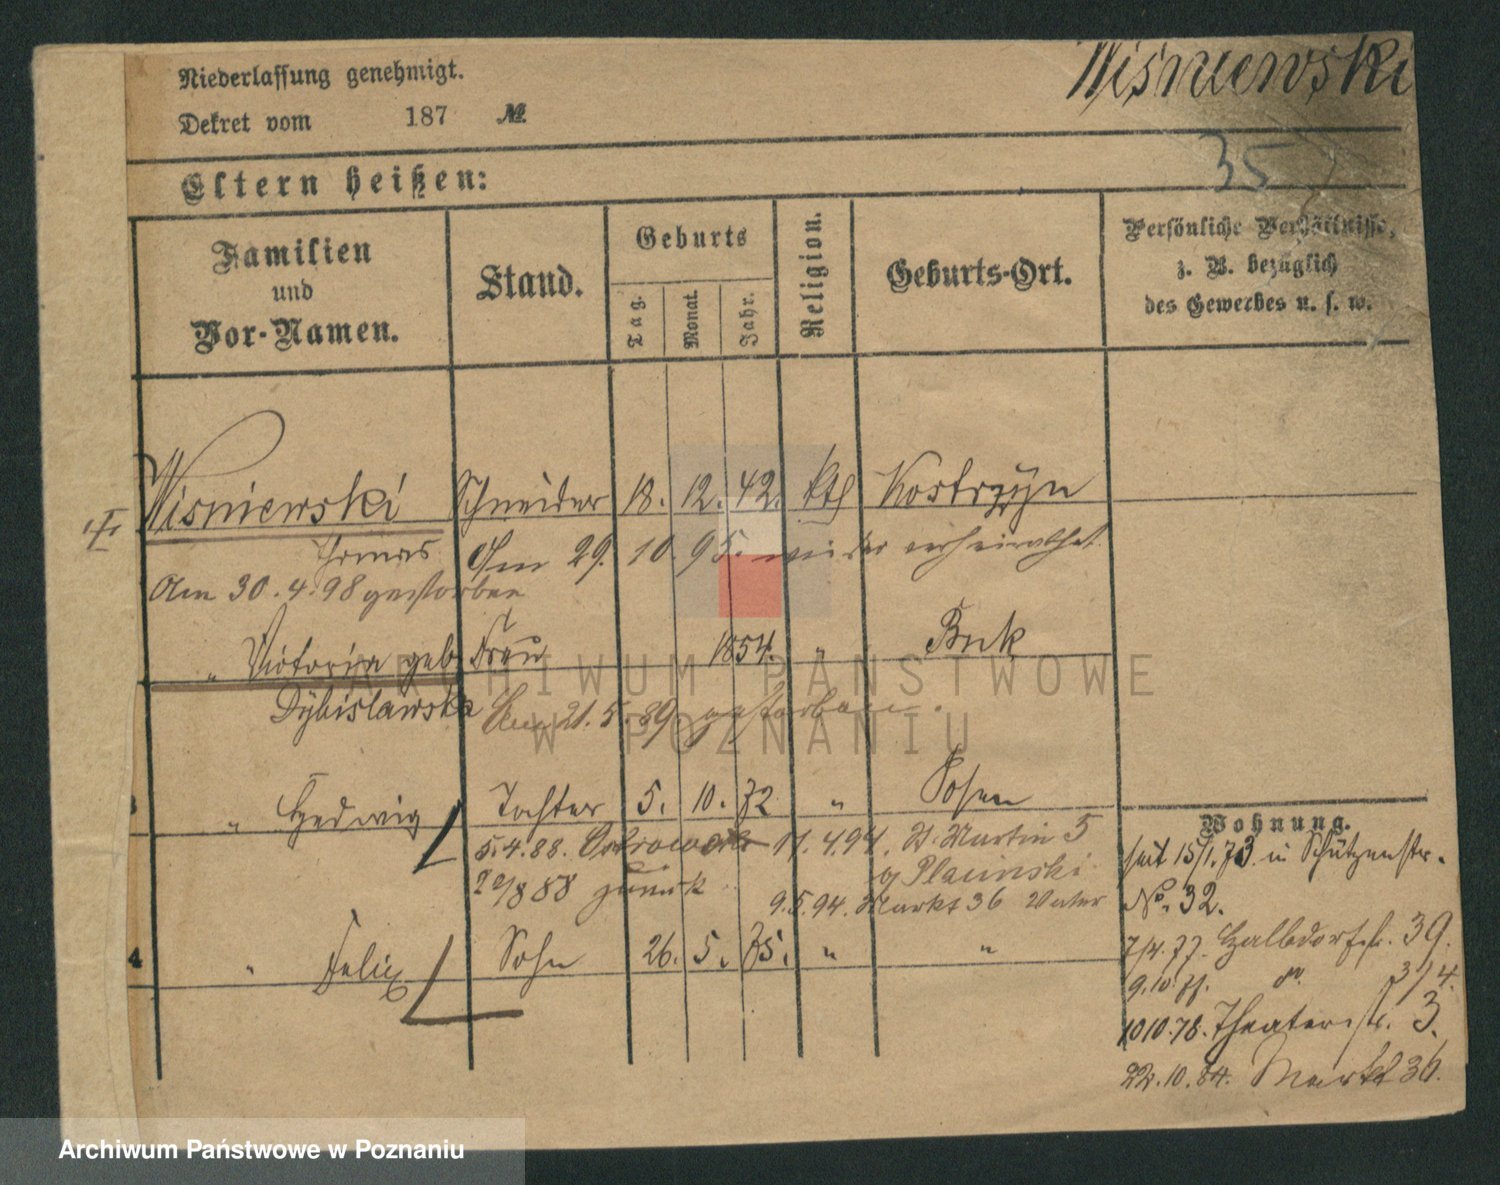 Niederlassung genehmigt.
Wiśniewski
Dekret vom 187 №
Eltern heißen:
35
Familien und Vor-Namen.
Stand.
Geburts
Tag.
Monat.
Jahr.
Religion.
Geburts-Ort.
Persönliche Verhältnisse,
z. B. bezüglich
des Gewerbes u. s. w.
Wisniewski Schneider 18. 12. 42. kth Kostrzyn
Thomas Am 29. 10. 95. wieder verheirathet.
Am 30. 4. 98 gestorben
" Victoria geb. Frau 1854. " Buk
Dybislawska Am 21. 5. 89 gestorben.
" Hedwig Tochter 5. 10. 72 " Posen
5.4.88. Ostrowo 11.4.94. St. Martin 5
b/ Placinski
22/8 88 zurück
9.5.94. Markt 36 Vater
4 " Felix Sohn 26. 5. 75. " "
Wohnung.
seit 15/1.73. in Schützenstr.
No. 32.
7/4.77. Halbdorfstr. 39.
9.10.77. do. 3/4.
10 10.78. Theaterstr. 3.
22.10.84. Markt 36.
ARCHIWUM PAŃSTWOWE
W POZNANIU
Archiwum Państwowe w Poznaniu